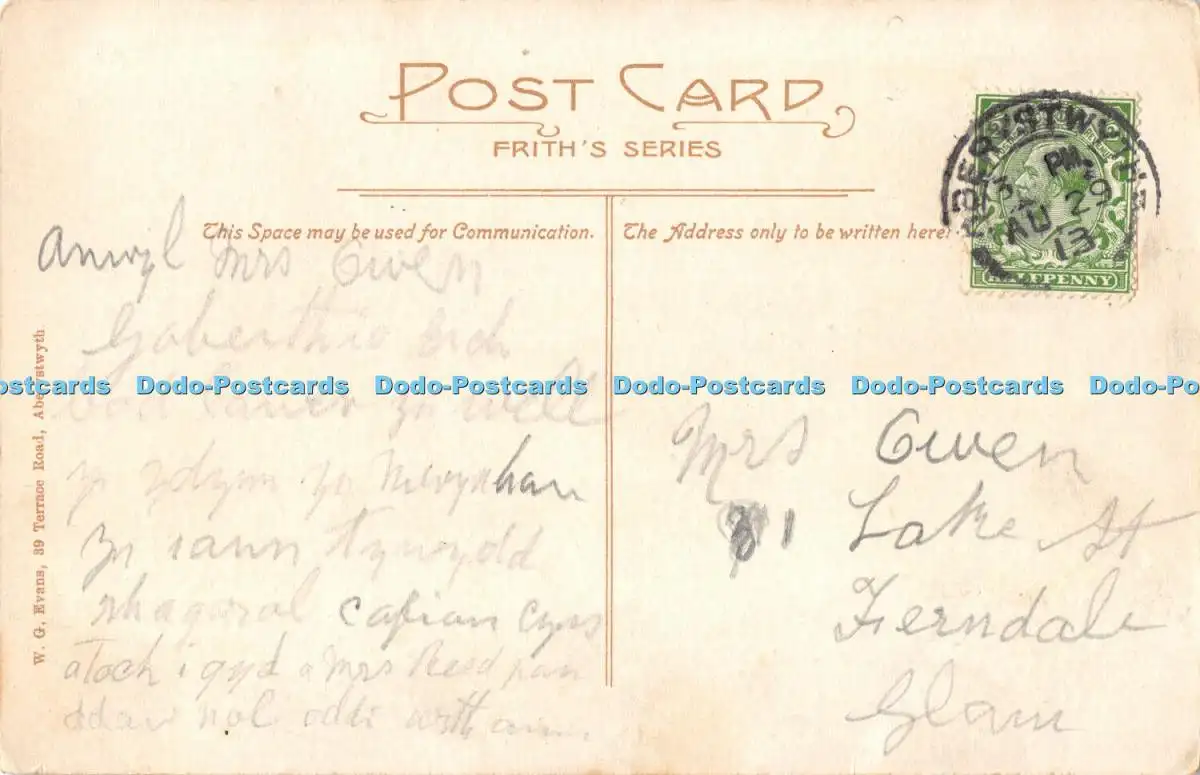 POST CARD
FRITH'S SERIES
This Space may be used for Communication.
The Address only to be written here.
ABERYSTWYTH
PM
AU 29
13
HALFPENNY
Anwyl Mrs Owen
Gobeithio eich
bod lawer yn well
yr ydym yn mwynhau
yn iawn Tywydd
rhagorol cofian cyns
atoch i gyd a Mrs Reed pan
ddaw nol oddi wrth
Mrs Owen
31 Lake St
Ferndale
Glam
W. G. Evans, 39 Terrace Road, Aberystwyth
Dodo-Postcards Dodo-Postcards Dodo-Postcards Dodo-Postcards